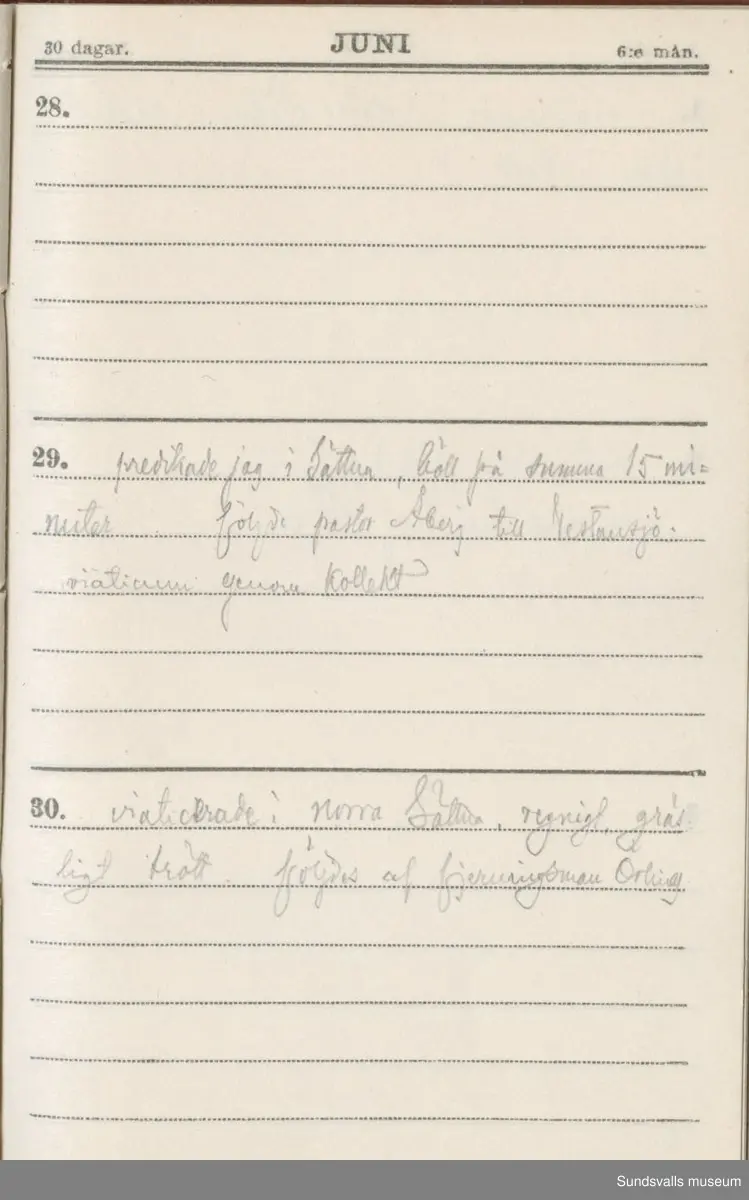 30 dagar. JUNI 6:e mån.
28.
29. predikade jag i Sättna, höll på summa 15 mi=
nuter. följde pastor Åberg till Vestansjö.
viaticum genom kollekt
30. viaticerade i norra Sättna, regnigt, gräs
ligt trött. följdes af fjerningsman
Sundsvalls museum